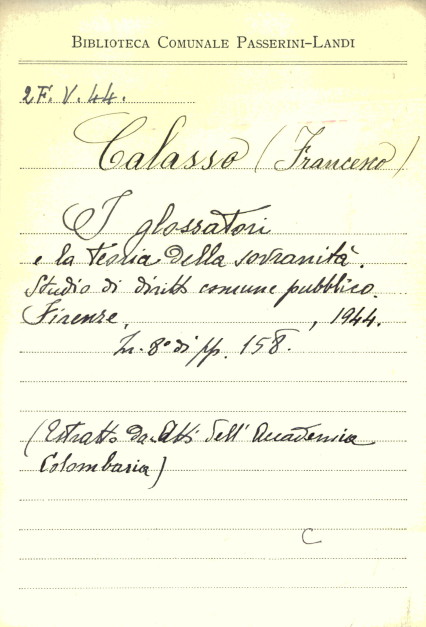 BIBLIOTECA COMUNALE PASSERINI-LANDI
2F. V. 44.
Calasso (Francesco)
I glossatori
e la teoria della sovranità.
Studio di diritto comune pubblico.
Firenze, , 1944.
In. 8° di pp. 158.
(Estratto da Atti dell' Accademia
Colombaria)
C